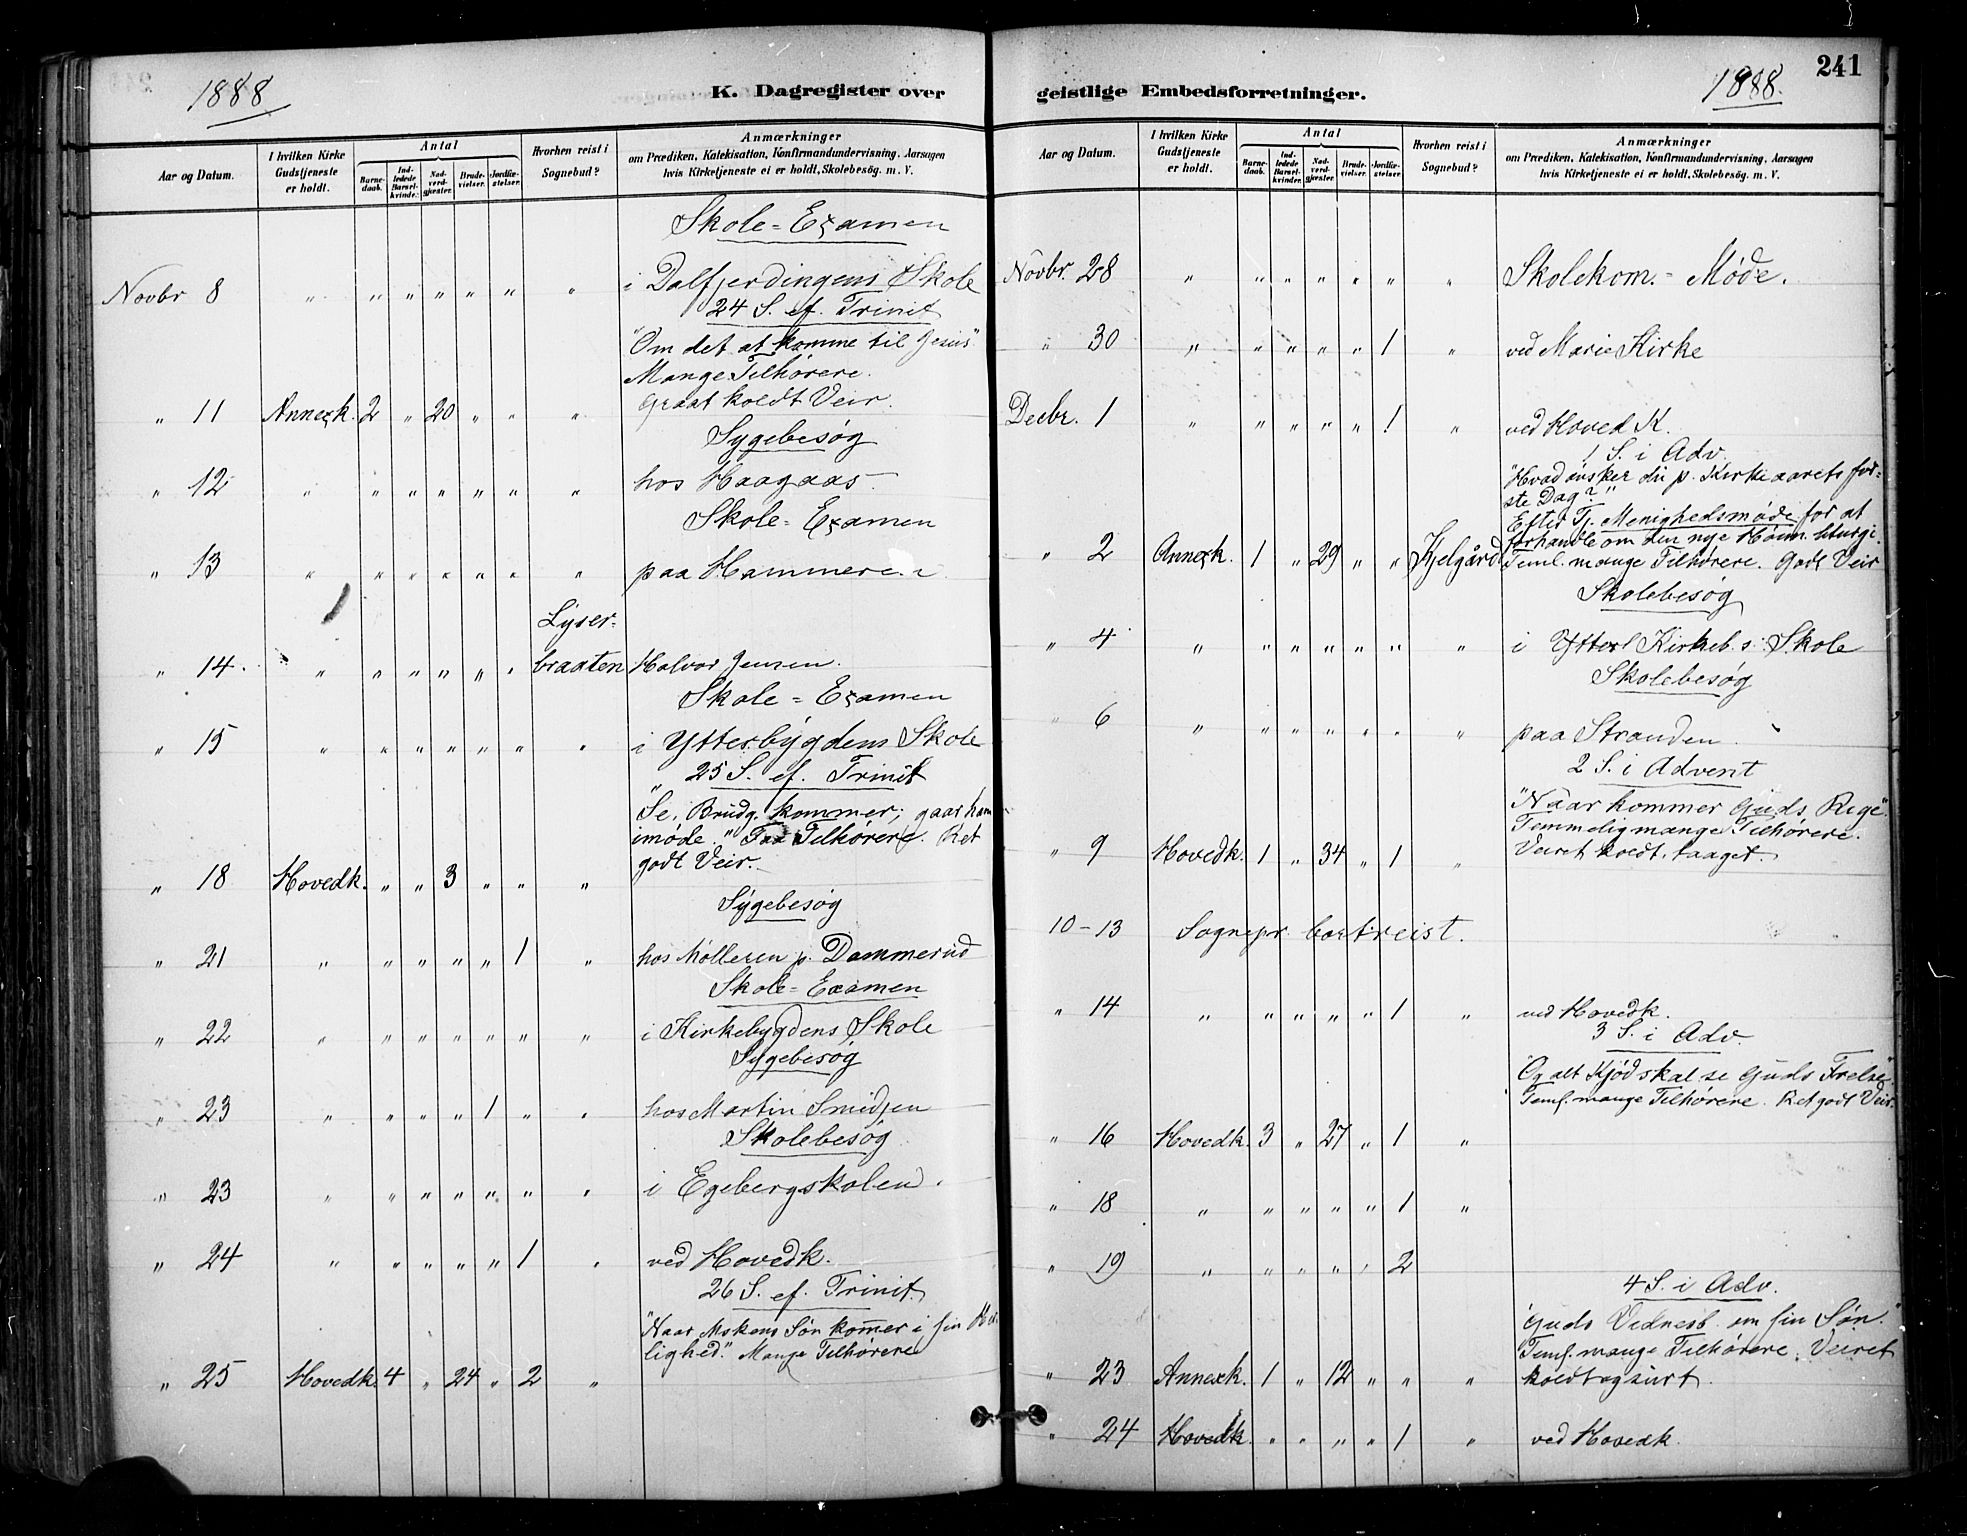 1888
K. Dagregister over
Aar og Datum.
I hvilken Kirke Gudstjeneste er holdt.
Antal
Barnedaab.
Indledede Barselkvinder.
Nadverdgjester.
Brudevielser.
Jordfæstelser.
Hvorhen reist i Sognebud?
Anmærkninger
om Prædiken, Katekisation, Konfirmandundervisning, Aarsagen
hvis Kirketjeneste ei er holdt, Skolebesög. m. V.
Skole-Examen
Novbr 8 " " " " " " " i Dalfjerdingens Skole
24 S. ef. Trinit
"Om det at komme til Jesus"
Mange Tilhørere.
Graat koldt Veir.
" 11 Annexk. 2 " 20 " " "
Sygebesøg
" 12 " " " " " " " hos Haagaas
Skole-Examen
" 13 " " " " " " " paa Hammeren
Lyser-
" 14. " " " " " " braaten Halvor Jensen.
Skole-Examen
" 15 " " " " " " " i Ytterbygdens Skole
25 S. ef. Trinit
"Se, Brudg. kommer; gaar ham
imøde." Faa Tilhørere. Ret
godt Veir.
" 18 Hovedk. " " 3 " " "
Sygebesøg
" 21 " " " " " 1 " hos Mølleren p. Dammerud
Skole-Examen
" 22 " " " " " " " i Kirkebygdens Skole
Sygebesøg
" 23 " " " " 1 " " hos Martin Smedjen
Skolebesøg
" 23 " " " " " " " i Egebergskolen.
" 24 " " " " " 1 " ved Hovedk.
26 S. ef. Trinit.
"Naar Mskens Søn kommer i sin Her-
lighed." Mange Tilhørere
" 25 Hovedk. 4 " 24 " 2 "
241
1888.
geistlige Embedsforretninger.
Aar og Datum.
I hvilken Kirke Gudstjeneste er holdt.
Antal
Barnedaab.
Indledede Barselkvinder.
Nadverdgjester.
Brudevielser.
Jordfæstelser.
Hvorhen reist i Sognebud?
Anmærkninger
om Prædiken, Katekisation, Konfirmandundervisning, Aarsagen
hvis Kirketjeneste ei er holdt, Skolebesög. m. V.
Novbr. 28 " " " " " " " Skolekom.-Møde.
" 30 " " " " " 1 " ved Marie Kirke
Decbr. 1 " " " " " 1 " ved Hoved K.
1 S. i Adv.
"Hvad ønsker du p. Kirkeaarets før-
ste Dag?"
Efter Tj. Menighedsmøde for at
forhandle om den nye Høim. liturgi.
" 2 Annexk. 1 " 29 " " Kjelgård Teml. mange Tilhørere. Godt Veir
Skolebesøg
" 4 " " " " " " " i Ytter Kirkeb.s. Skole
Skolebesøg
" 6 " " " " " " " paa Stranden
2 S. i Advent
"Naar kommer Guds Rige"
Temmelig mange Tilhørere.
" 9 Hovedk. 1 " 34 " 1 " Veiret koldt, taaget.
10-13 Sognepr. bortreist.
" 14 " " " " " 1 " ved Hovedk.
3 S. i Adv.
"Og alt Kjød skal se Guds Frelse".
Teml. mange Tilhørere. Ret godt Veir.
" 16 Hovedk. 3 " 27 " 1 "
" 18 " " " " " 1 "
" 19 " " " " " 2
4 S. i Adv.
"Guds Vidnesb. om sin Søn."
Teml. mange Tilhørere. Veiret
" 23 Annexk. 1 " 12 " " " koldt og surt.
" 24 Hovedk " " " " 1 " ved Hovedk.